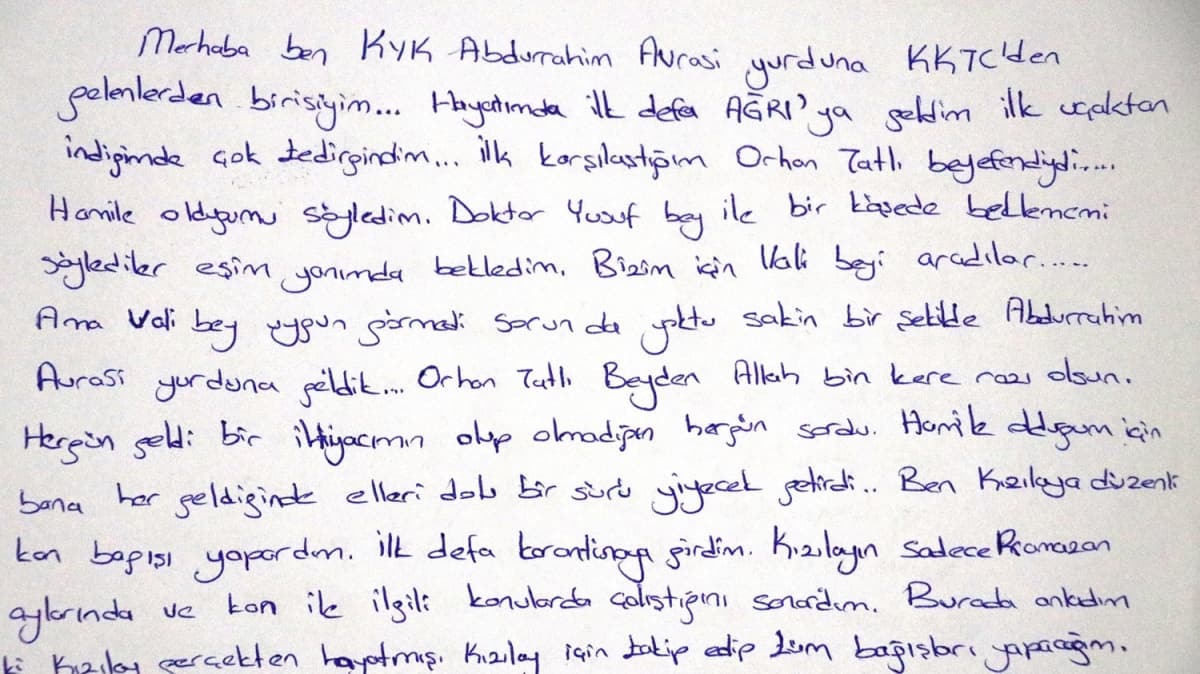 Merhaba ben KYK Abdurrahim Avrasi yurduna KKTC'den
gelenlerden birisiyim... Hayatımda ilk defa AĞRI'ya geldim ilk uçaktan
indiğimde çok tedirgindim... ilk karşılaştığım Orhan Tatlı beyefendiydi.....
Hamile olduğumu söyledim. Doktor Yusuf bey ile bir köşede beklememi
söylediler eşim yanımda bekledim. Bizim için Vali beyi aradılar.....
Ama Vali bey uygun görmedi sorun da yoktu sakin bir şekilde Abdurrahim
Avrasi yurduna geldik... Orhan Tatlı Beyden Allah bin kere razı olsun.
Hergün geldi bir ihtiyacımın olup olmadığını hergün sordu. Hamile olduğum için
bana her geldiğinde elleri dolu bir sürü yiyecek getirdi.. Ben Kızılaya düzenli
kan bağışı yapardım. ilk defa karantinaya girdim. Kızılayın sadece Ramazan
aylarında ve kan ile ilgili konularda çalıştığını sanardım. Burada anladım
ki Kızılay gerçekten hayatmış. Kızılay için takip edip tüm bağışları yapacağım.